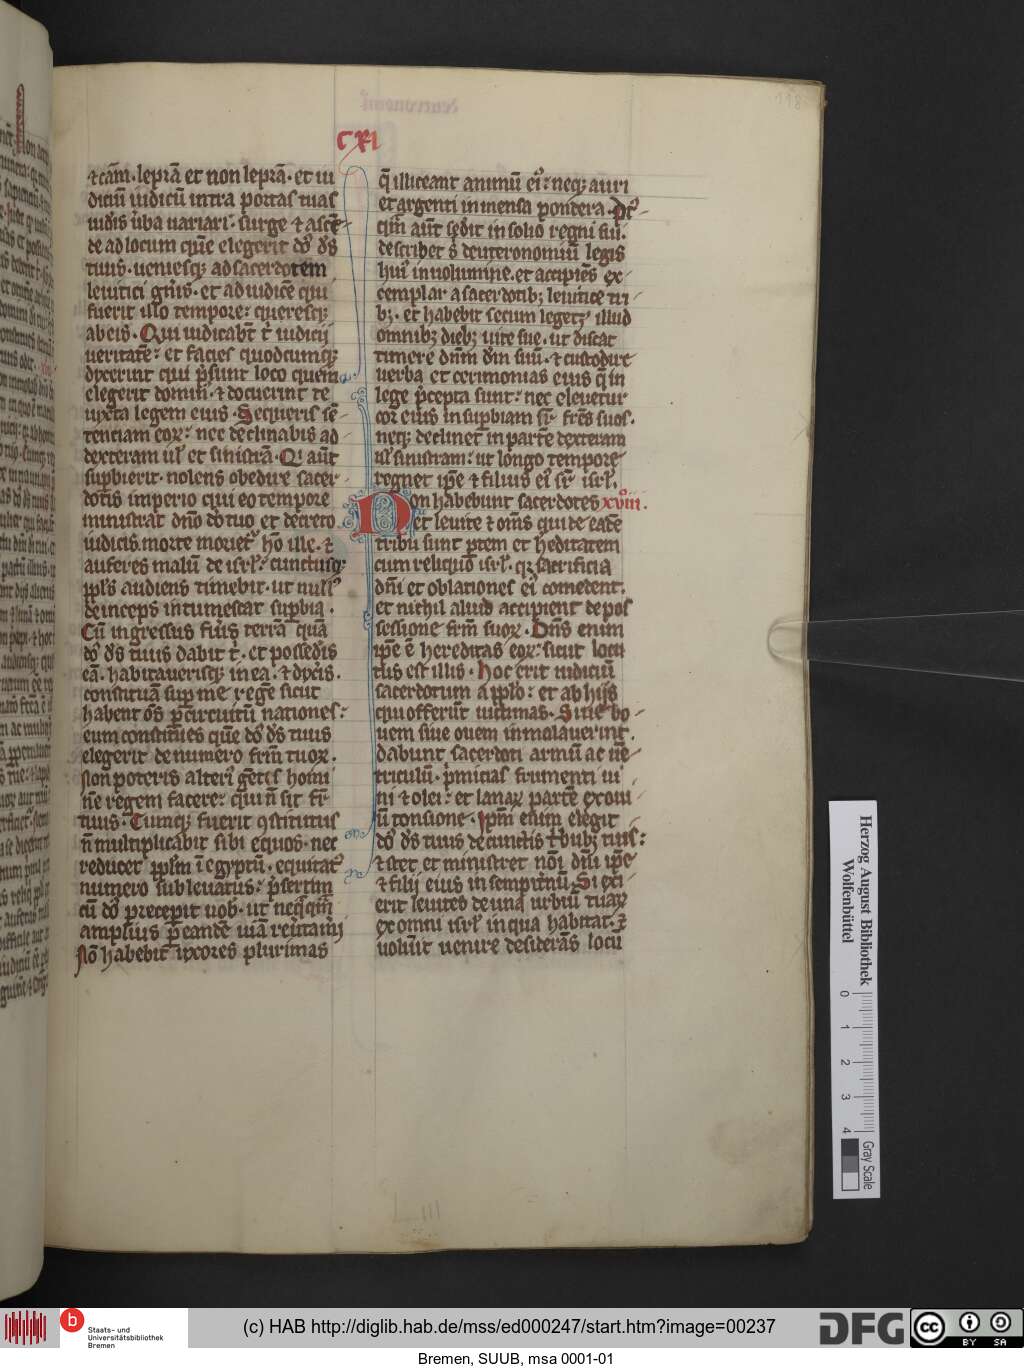 CXI
⁊ cãm · leprã et non leprã · et iu
diciũ iudiciũ intra portas tuas
uidis ũba uariari · surge ⁊ ascẽ
de ad locum quẽ elegerit dñs ds̃
tuus · ueniesq; ad sacerdotem
leuitici gñis · et ad iudicẽ qui
fuerit illo tempore: queresq;
ab eis · Qui iudicabt̃ t̃ iudicij
ueritatẽ: et facies quodcumq;
dixerint qui p̃sunt loco quem
elegerit domin⁹ · ⁊ docuerint te
iuxta legem eius · Sequeris sẽ
tenciam eoꝝ: nec declinabis ad
dexteram ul̃ et sinistrã · Qi aũt
supbierit · nolens obedire sacer
dotis imperio qui eo tempore
ministrat dño dõ tuo et decreto
iudicis · morte moriet̃ hõ ille · ⁊
auferes malũ de isrl̃: cunctusq;
ppl̃s audiens timebit · ut null⁹
deinceps intumescat supbia ·
Cũ ingressus fũis terrã quã
dñs ds̃ tuus dabit t̃ · et possedis
eã · habitauerisq; in ea · ⁊ dix̃is ·
constituã sup me regẽ sicut
habent õs p̃ circuitũ nationes:
eum constitues quẽ dñs ds̃ tuus
elegerit de numero fr̃m tuoꝝ ·
Non poteris alteri⁹ gẽtis homi
nẽ regem facere: qui ñ sit fr̃
tuus · Cumq; fuerit ꝯstitutus
ñ multiplicabit sibi equos · nec
reducet ppl̃m ĩ egyptũ · equitat⁹
numero subleuatus: p̃sertim
cũ dñs precepit uob̃ · ut neq̃q̃m
amplius p̃ eandẽ uiã reuitamj
Nõ habebit uxores plurimas
q̃ illiceant animũ ei⁹: neq; auri
et argenti inmensa pondera · Pt̃
q̃m aũt sed̃it in solio regni sui ·
describet s̃ deuteronomiũ legis
hui⁹ in uolumine · et accipiẽs ex
cemplar a sacerdotib; leuitice tri
b; · et habebit secum legetq; illud
omnib; dieb; uite sue · ut discat
timere dñm dm̃ suũ · ⁊ custodire
uerba et cerimonias eius q̃ in
lege p̃cepta sunt: nec eleuetur
cor eius in supbiam sr̃ fr̃es suos ·
neq; declinet in partẽ dexteram
ul̃ sinistram: ut longo tempore
regnet ip̃e ⁊ filius ei⁹ sr̃ isrl̃ ·
Non habebunt sacerdotes xviii ·
et leuite ⁊ om̃s qui de eadẽ
tribu sunt p̃tem et h̃editatem
cum reliquo isrl̃ · q; sacrificia
dñi et oblationes ei⁹ comedent ·
et nichil aliud accipient de pos
sessione fr̃m suoꝝ · Dñs enim
ip̃e ẽ hereditas eoꝝ: sicut locu
tus est illis · Hoc erit iudiciũ
sacerdotum a pplo: et ab hijs
qui offerũt uictimas · Siue bo
uem siue ouem inmolauerint ·
dabunt sacerdoti armũ ac uẽ
triculũ · p̃micias frumenti ui
ni ⁊ olei: et lanaꝝ partẽ ex oui
ũ tonsione · Ip̃m enim elegit
dñs ds̃ tuus de cunctis t̃bub; tuis:
⁊ stet et ministret nõi dñi ip̃e
⁊ filij eius in sempit̃nũ · Si exi
erit leuites de una urbiũ tuaꝝ
ex omni isrl̃ in qua habitat · ⁊
uolũit uenire desiderãs locũ
118
Herzog August Bibliothek
Wolfenbüttel
0 1 2 3 4
Gray Scale
b Staats- und
Universitätsbibliothek
Bremen
(c) HAB http://diglib.hab.de/mss/ed000247/start.htm?image=00237
DFG
cc BY SA
Bremen, SUUB, msa 0001-01